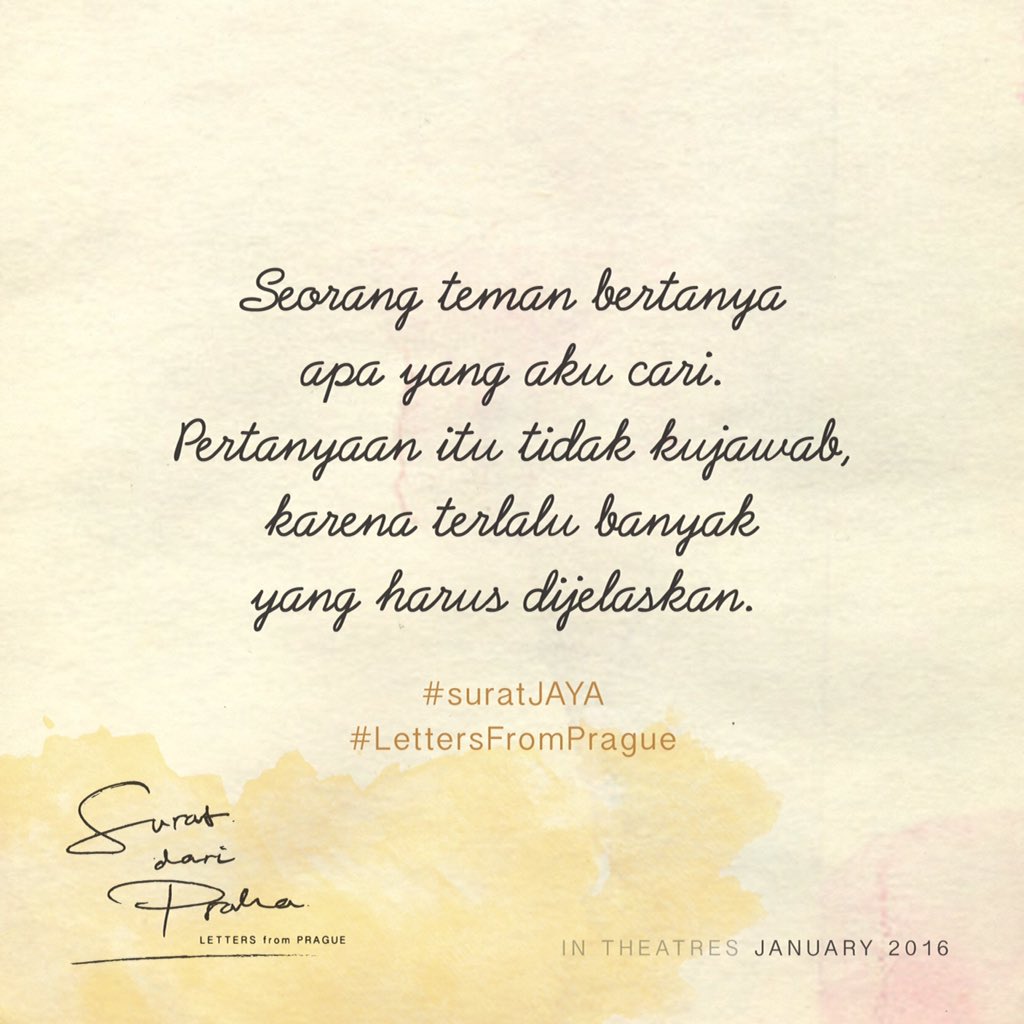 Seorang teman bertanya
apa yang aku cari.
Pertanyaan itu tidak kujawab,
karena terlalu banyak
yang harus dijelaskan.
#suratJAYA
#LettersFromPrague
Surat
dari
Praha
LETTERS from PRAGUE
IN THEATRES JANUARY 2016